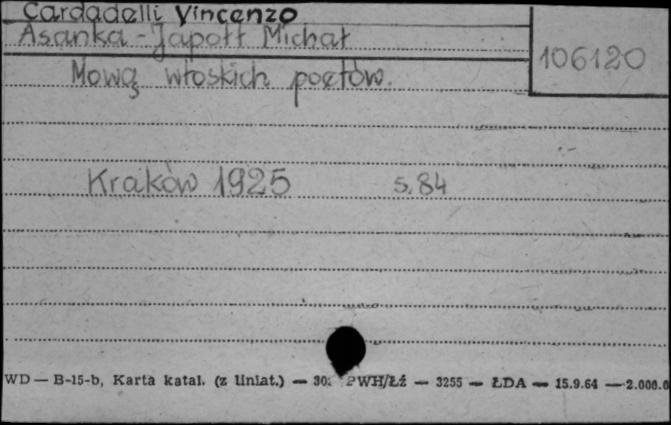 Cardadelli Vincenzo
Asanka-Japołł Michał
106120
Mową włoskich poetów.
Kraków 1925 s. 84
WD — B-15-b, Karta katal. (z liniat.) — 30. PWH/Łź — 3255 — ŁDA — 15.9.64 — 2.000.0